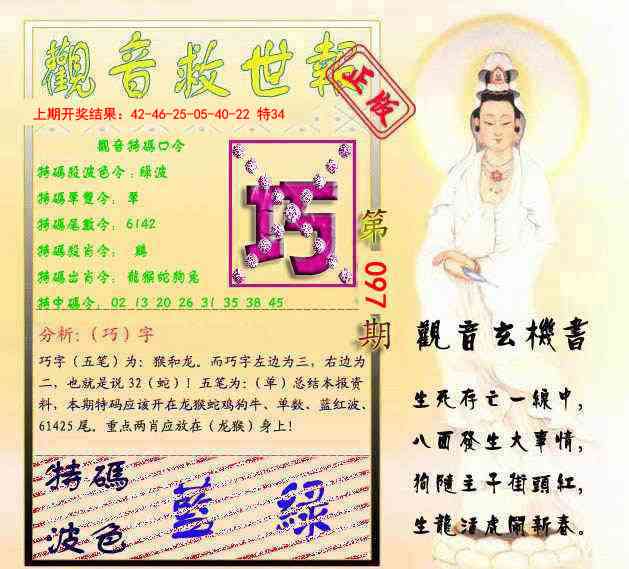 觀音救世報
正版
上期开奖结果：42-46-25-05-40-22 特34
觀音特碼口令
特碼段波色令：綠波
特碼單雙令： 單
特碼尾數令： 6142
特碼殺肖令： 鷄
特碼出肖令：龍猴蛇狗兔
特中碼令：02 13 20 26 31 35 38 45
巧
第 097 期
分析：（巧）字
巧字（五笔）为：猴和龙。而巧字左边为三，右边为
二，也就是说 32（蛇）！五笔为：（单）总结本报资
料，本期特码应该开在龙猴蛇鸡狗牛、单数、蓝红波、
61425 尾。重点两肖应放在（龙猴）身上！
特碼
波色
藍 綠
觀音玄機書
生死存亡一線中，
八面發生大事情，
狗隨主子街頭紅，
生龍活虎鬧新春。